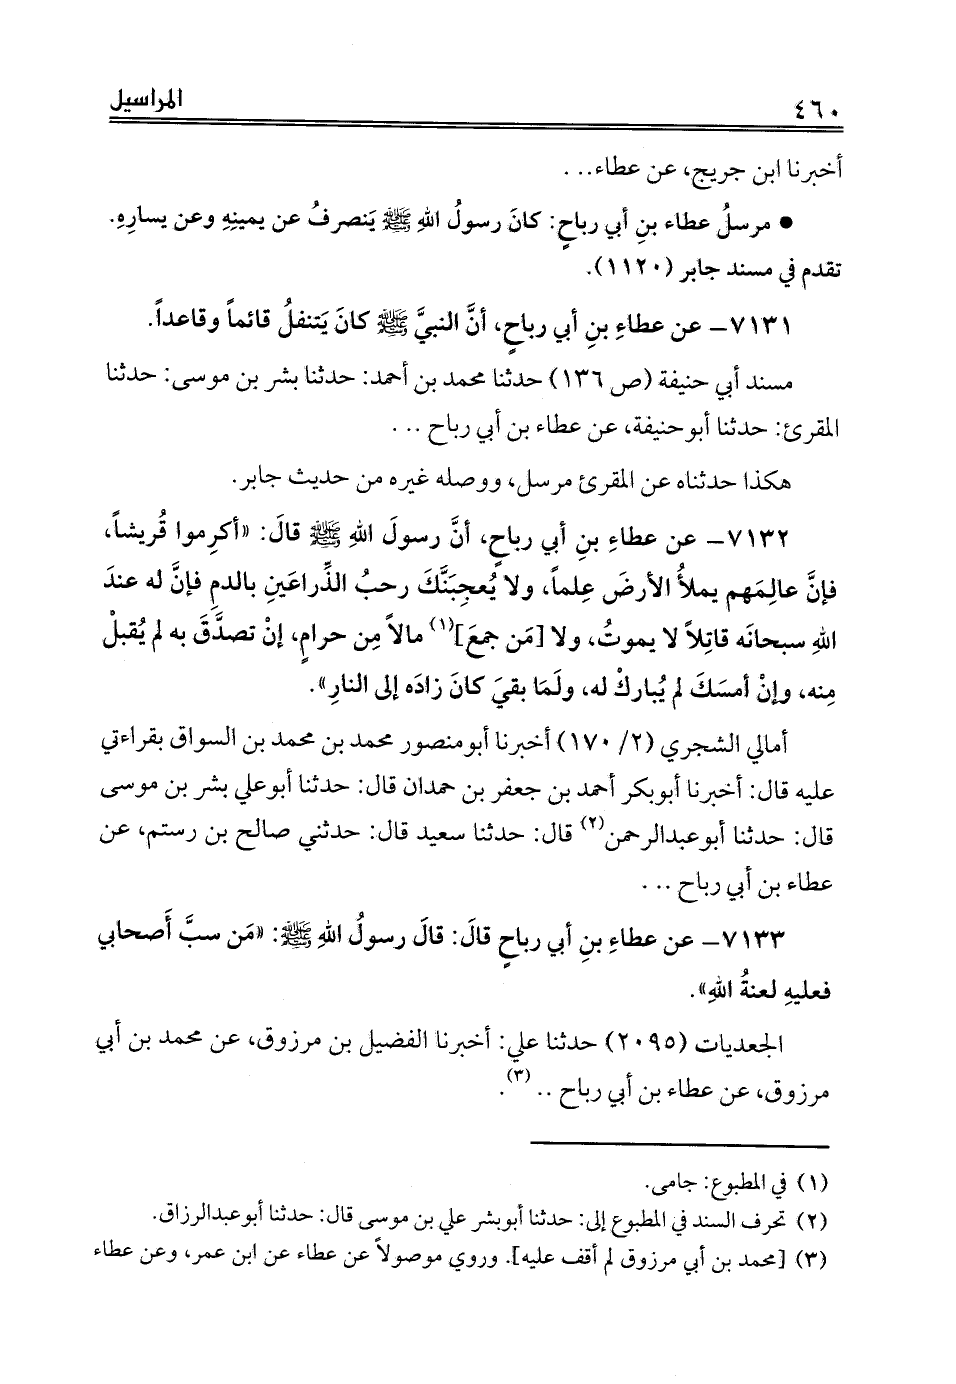 المراسيل ٤٦٠
أخبرنا ابن جريج، عن عطاء...
● مرسلُ عطاء بنِ أبي رباحٍ: كانَ رسولُ اللهِ ﷺ يَنصرفُ عن يمينِهِ وعن يسارِهِ.
تقدم في مسند جابر (١١٢٠).
٧١٣١- عن عطاءِ بنِ أبي رباحٍ، أنَّ النبيَّ ﷺ كانَ يَتنفلُ قائماً وقاعداً.
مسند أبي حنيفة (ص ١٣٦) حدثنا محمد بن أحمد: حدثنا بشر بن موسى: حدثنا
المقرئ: حدثنا أبوحنيفة، عن عطاء بن أبي رباح ...
هكذا حدثناه عن المقرئ مرسل، ووصله غيره من حديث جابر.
٧١٣٢- عن عطاءِ بنِ أبي رباحٍ، أنَّ رسولَ اللهِ ﷺ قالَ: «أكرِموا قُريشاً،
فإنَّ عالِمَهم يملأُ الأرضَ عِلماً، ولا يُعجِبَنَّكَ رحبُ الذِّراعَينِ بالدمِ فإنَّ له عندَ
اللهِ سبحانَه قاتِلاً لا يموتُ، ولا [مَن جمعَ](١) مالاً مِن حرامٍ، إنْ تصدَّقَ به لم يُقبلْ
مِنه، وإنْ أمسَكَ لم يُباركْ له، ولَمَا بقيَ كانَ زادَه إلى النارِ».
أمالي الشجري (٢/ ١٧٠) أخبرنا أبومنصور محمد بن محمد بن السواق بقراءتي
عليه قال: أخبرنا أبوبكر أحمد بن جعفر بن حمدان قال: حدثنا أبوعلي بشر بن موسى
قال: حدثنا أبوعبدالرحمن(٢) قال: حدثنا سعيد قال: حدثني صالح بن رستم، عن
عطاء بن أبي رباح ...
٧١٣٣- عن عطاءِ بنِ أبي رباحٍ قالَ: قالَ رسولُ اللهِ ﷺ: «مَن سبَّ أَصحابي
فعليهِ لعنةُ اللهِ».
الجعديات (٢٠٩٥) حدثنا علي: أخبرنا الفضيل بن مرزوق، عن محمد بن أبي
مرزوق، عن عطاء بن أبي رباح ..(٣).
(١) في المطبوع: جامى.
(٢) تحرف السند في المطبوع إلى: حدثنا أبوبشر علي بن موسى قال: حدثنا أبوعبدالرزاق.
(٣) [محمد بن أبي مرزوق لم أقف عليه]. وروي موصولاً عن عطاء عن ابن عمر، وعن عطاء